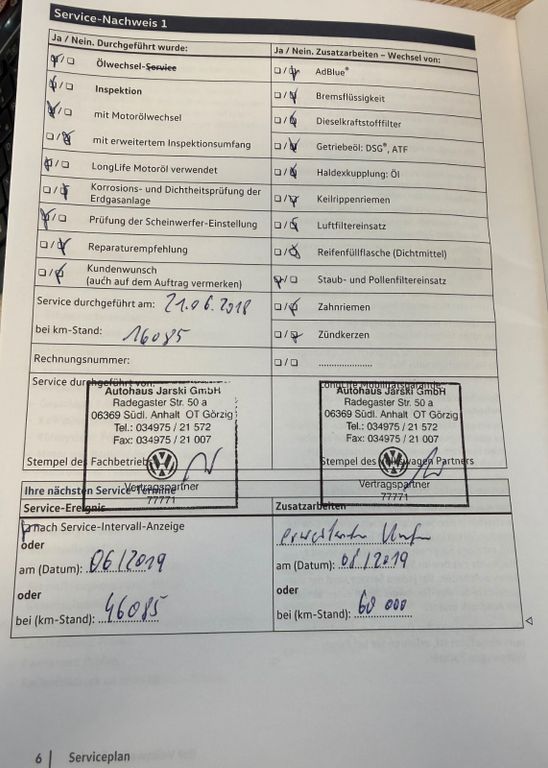 Service-Nachweis 1
Ja / Nein. Durchgeführt wurde:
☑/☐ Ölwechsel-Service
☑/☐ Inspektion
☑/☐ mit Motorölwechsel
☐/☑ mit erweitertem Inspektionsumfang
☑/☐ LongLife Motoröl verwendet
☐/☑ Korrosions- und Dichtheitsprüfung der
Erdgasanlage
☑/☐ Prüfung der Scheinwerfer-Einstellung
☐/☑ Reparaturempfehlung
☐/☑ Kundenwunsch
(auch auf dem Auftrag vermerken)
Service durchgeführt am: 21.06.2018
bei km-Stand: 16085
Rechnungsnummer:
Service durchgeführt von:
Autohaus Jarski GmbH
Radegaster Str. 50 a
06369 Südl. Anhalt OT Görzig
Tel.: 034975 / 21 572
Fax: 034975 / 21 007
Stempel des Fachbetriebs
Vertragspartner
77771
Ja / Nein. Zusatzarbeiten – Wechsel von:
☐/☑ AdBlue®
☐/☑ Bremsflüssigkeit
☐/☑ Dieselkraftstofffilter
☐/☑ Getriebeöl: DSG®, ATF
☐/☑ Haldexkupplung: Öl
☐/☑ Keilrippenriemen
☐/☑ Luftfiltereinsatz
☐/☑ Reifenfüllflasche (Dichtmittel)
☑/☐ Staub- und Pollenfiltereinsatz
☐/☑ Zahnriemen
☐/☑ Zündkerzen
☐/☐ ....................
LongLife Mobilitätsgarantie:
Autohaus Jarski GmbH
Radegaster Str. 50 a
06369 Südl. Anhalt OT Görzig
Tel.: 034975 / 21 572
Fax: 034975 / 21 007
Stempel des Volkswagen Partners
Vertragspartner
77771
Ihre nächsten Service-Termine
Service-Ereignis
☑ nach Service-Intervall-Anzeige
oder
am (Datum): 06/2019
oder
bei (km-Stand): 46085
Zusatzarbeiten
am (Datum): 06/2019
oder
bei (km-Stand): 60 000
6 | Serviceplan